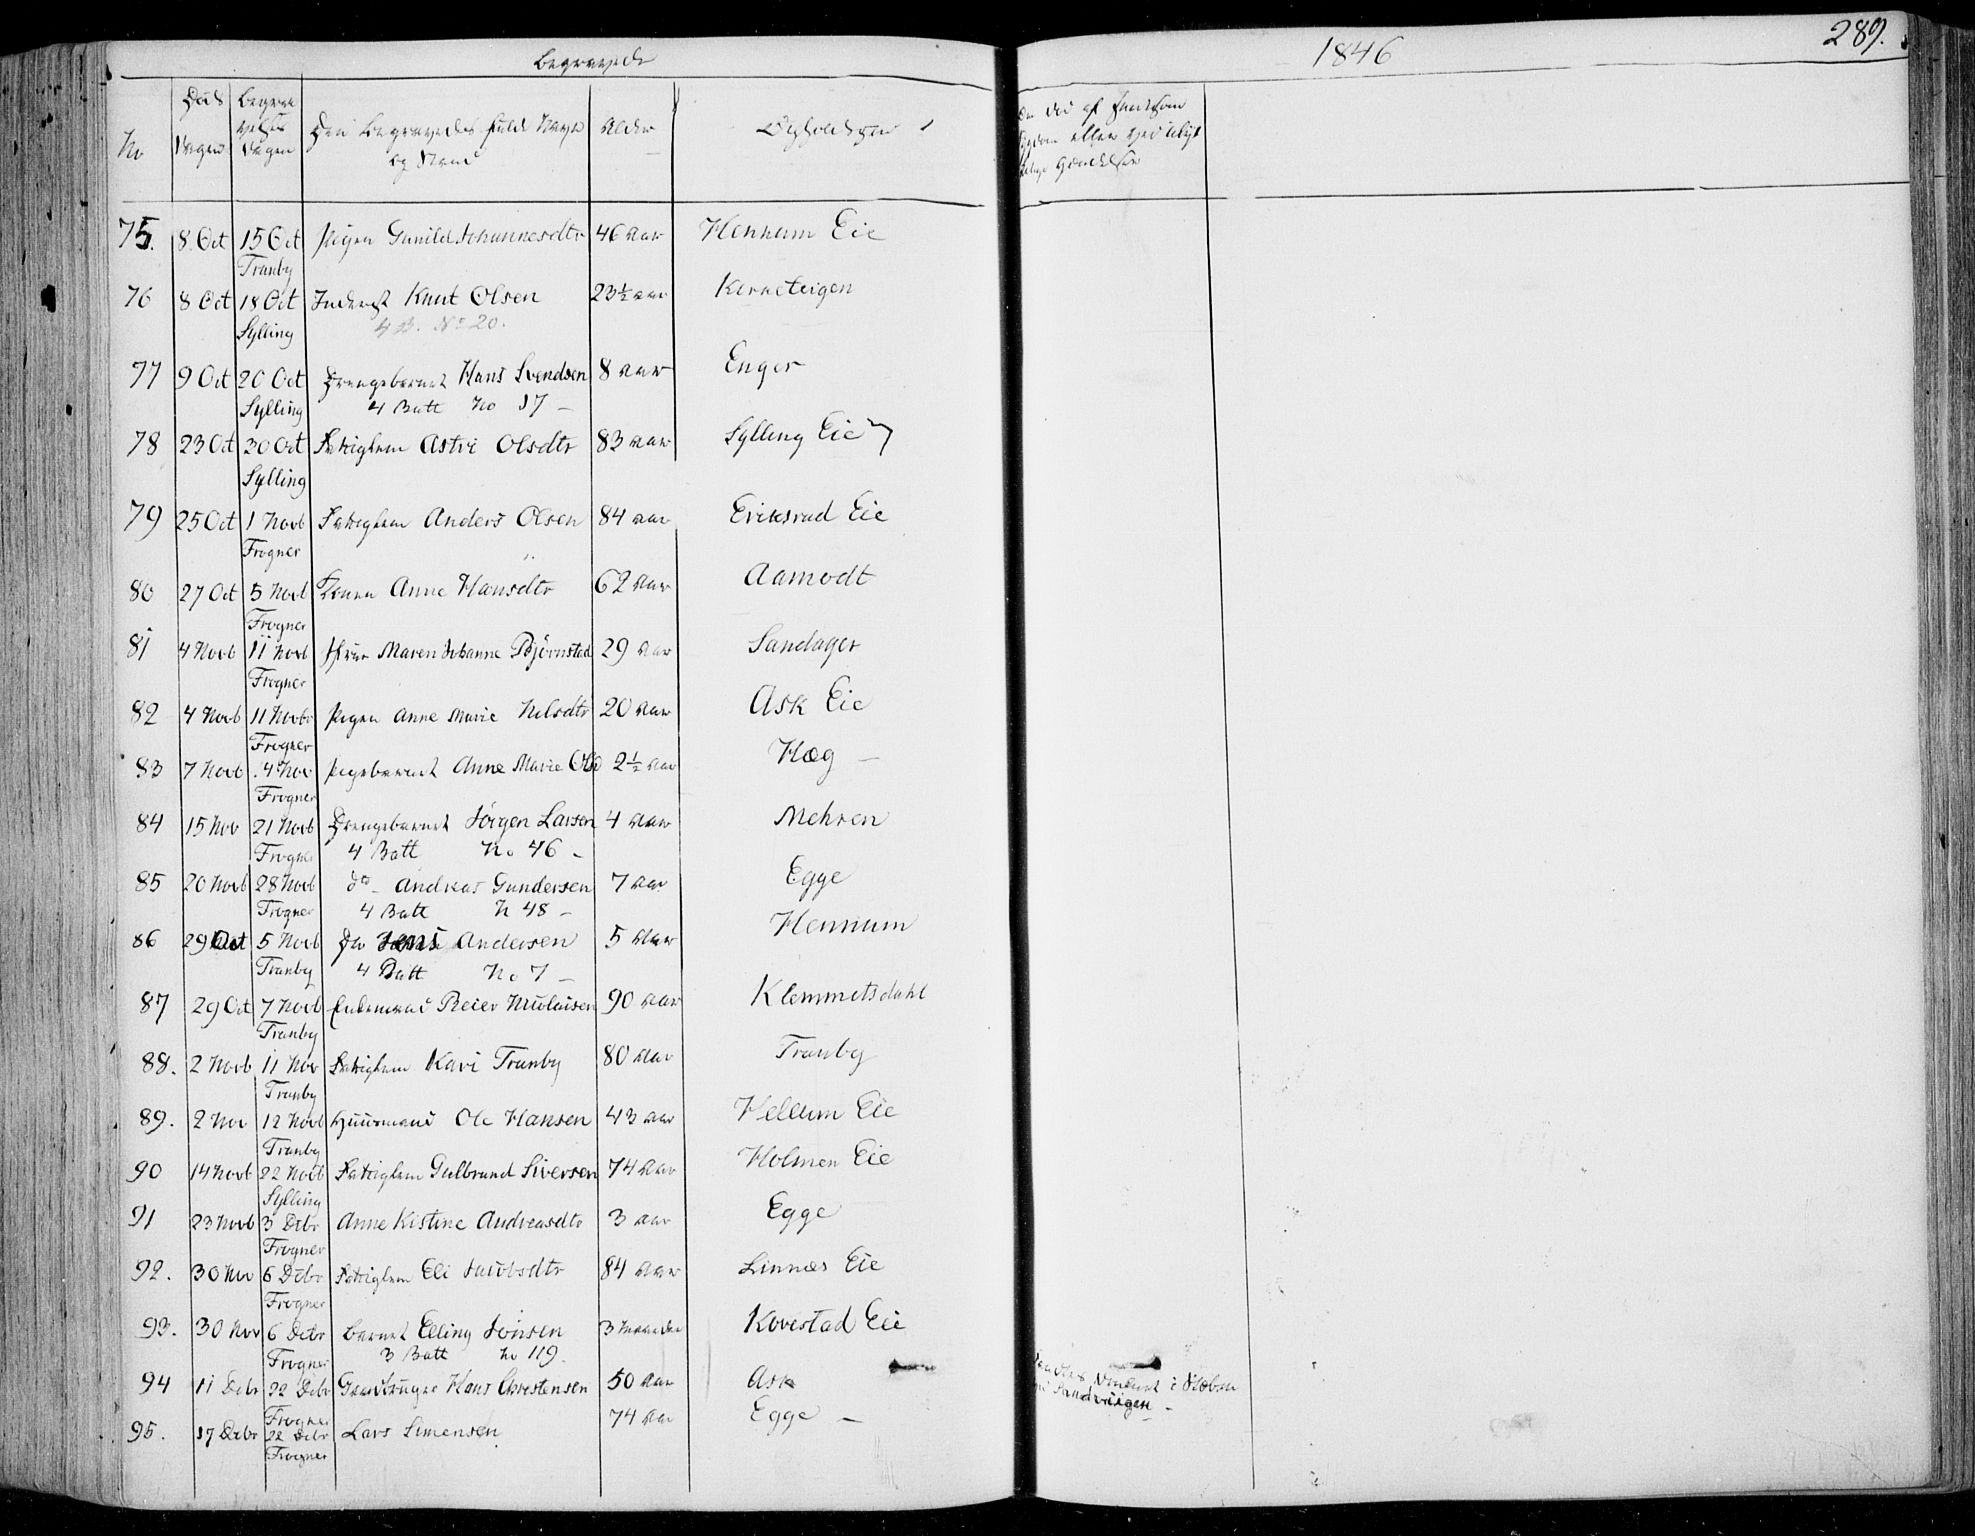 Begravede
1846
289.
No
Døds Dagen
Begravelses Dagen
Den Begravedes fulde Navn og Stand
Alder
Opholdsted
75. 8 Oct 15 Oct Pigen Gunild Johannesdtr 46 Aar Hennum Eie
Tranby
76 8 Oct 18 Oct Inderst Knut Olsen 23½ Aar Kerneteigen
Sylling 4 B. No 20.
77 9 Oct 20 Oct Drengebarnet Hans Svendsen 8 Aar Enger
Sylling 4 Batt No 17 –
78 23 Oct 30 Oct Fattiglem Astri Olsdtr 83 Aar Sylling Eie
Sylling
79 25 Oct 1 Novb Fattiglem Anders Olsen 84 Aar Eriksrud Eie
Frogner
80 27 Oct 5 Novb Konen Anne Hansdtr 62 Aar Aamodt
Frogner
81 4 Novb 11 Novb Frue Maren Johanne Bjørnstad 29 Aar Sandager
Frogner
82 4 Novb 11 Novbr Pigen Anne Marie Nilsdtr 20 Aar Ask Eie
Frogner
83 7 Novb 14 Nov Pigebarnet Anne Marie Olsd 2½ Aar Hæg –
Frogner
84 15 Nov 21 Novb Drengebarnet Jørgen Larsen 4 Aar Mehren
Frogner 4 Batt No 46 –
85 20 Novb 28 Novb do – Andreas Gundersen 7 Aar Egge
Frogner 4 Batt N 48 –
86 29 Oct 5 Novb Do Jens Andersen 5 Aar Hennum
Tranby 4 Batt No 7 –
87 29 Oct 7 Novb Enkemand Reier Nicolaisen 90 Aar Klemmetsdahl
Tranby
88. 2 Novb 11 Nov Fattiglem Kari Tranby 80 Aar Tranby
Tranby
89. 2 Nov 12 Novb Huusmand Ole Hansen 43 Aar Hellum Eie
Tranby
90 14 Novb 22 Novb Fattiglem Gulbrand Siversen 74 Aar Holmen Eie
Sylling
91 23 Novb 3 Debr Anne Kistine Andreasdtr 3 Aar Egge
Frogner
92. 30 Nov 6 Debr Fattiglem Eli Jacobsdtr 84 Aar Linnæs Eie
Frogner
93. 30 Nov 6 Debr Barnet Elling Jonsen 3 Maaneder Kovestad Eie
Frogner 3 Batt No 119.
94 11 Debr 22 Debr Gaardbruger Hans Christensen 50 Aar Ask
Frogner
95. 17 Debr 22 Debr Lars Simensen 74 Aar Egge –
Frogner